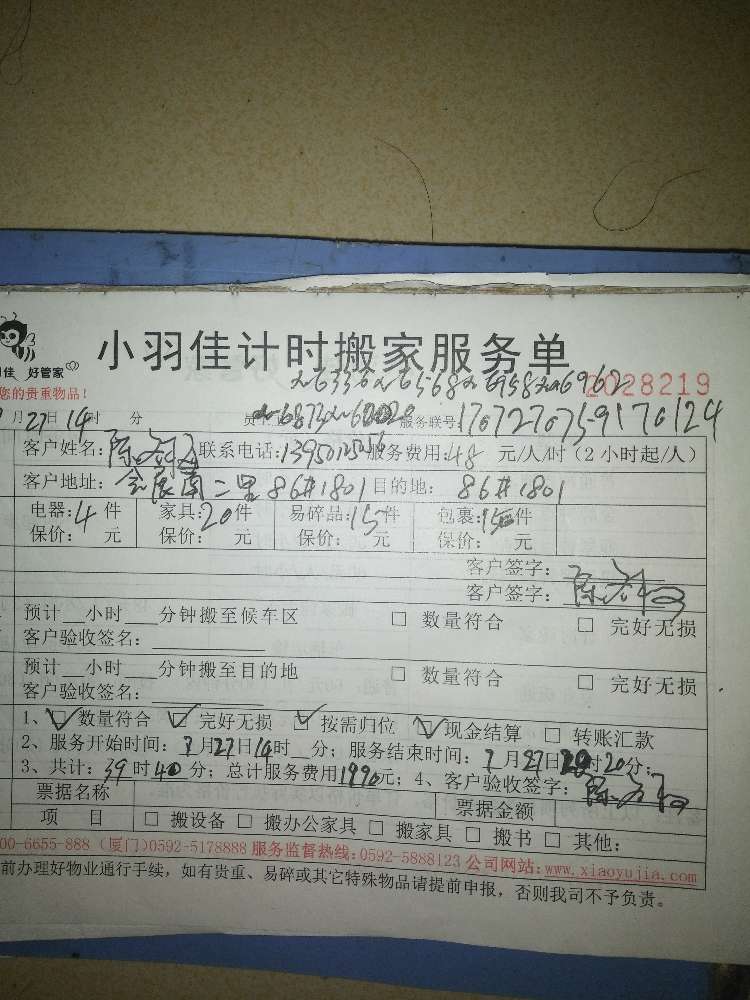 小羽佳计时搬家服务单
佳 好管家
您的贵重物品！
2028219
月27日14时 分 服务联号:1707270759170124
客户姓名: 陈 联系电话:13950125056 服务费用:48 元/人/时（2小时起/人）
客户地址: 会展南二里86#1801 目的地: 86#1801
电器:4件 家具:20件 易碎品:15件 包裹:15件
保价: 元 保价: 元 保价: 元 保价: 元
客户签字:
客户签字: 陈
预计__小时___分钟搬至候车区 □ 数量符合 □ 完好无损
客户验收签名:
预计__小时___分钟搬至目的地 □ 数量符合 □ 完好无损
客户验收签名:
1、☑数量符合 ☑完好无损 ☑按需归位 ☑现金结算 □ 转账汇款
2、服务开始时间: 7月27日14时__分; 服务结束时间: 7月27日20时20分;
3、共计: 39时40分; 总计服务费用1990元; 4、客户验收签字: 陈
票据名称 票据金额
项 目 □ 搬设备 □ 搬办公家具 □ 搬家具 □ 搬书 □ 其他:
00-6655-888（厦门）0592-5178888 服务监督热线:0592-5888123 公司网站:www.xiaoyujia.com
前办理好物业通行手续，如有贵重、易碎或其它特殊物品请提前申报，否则我司不予负责。